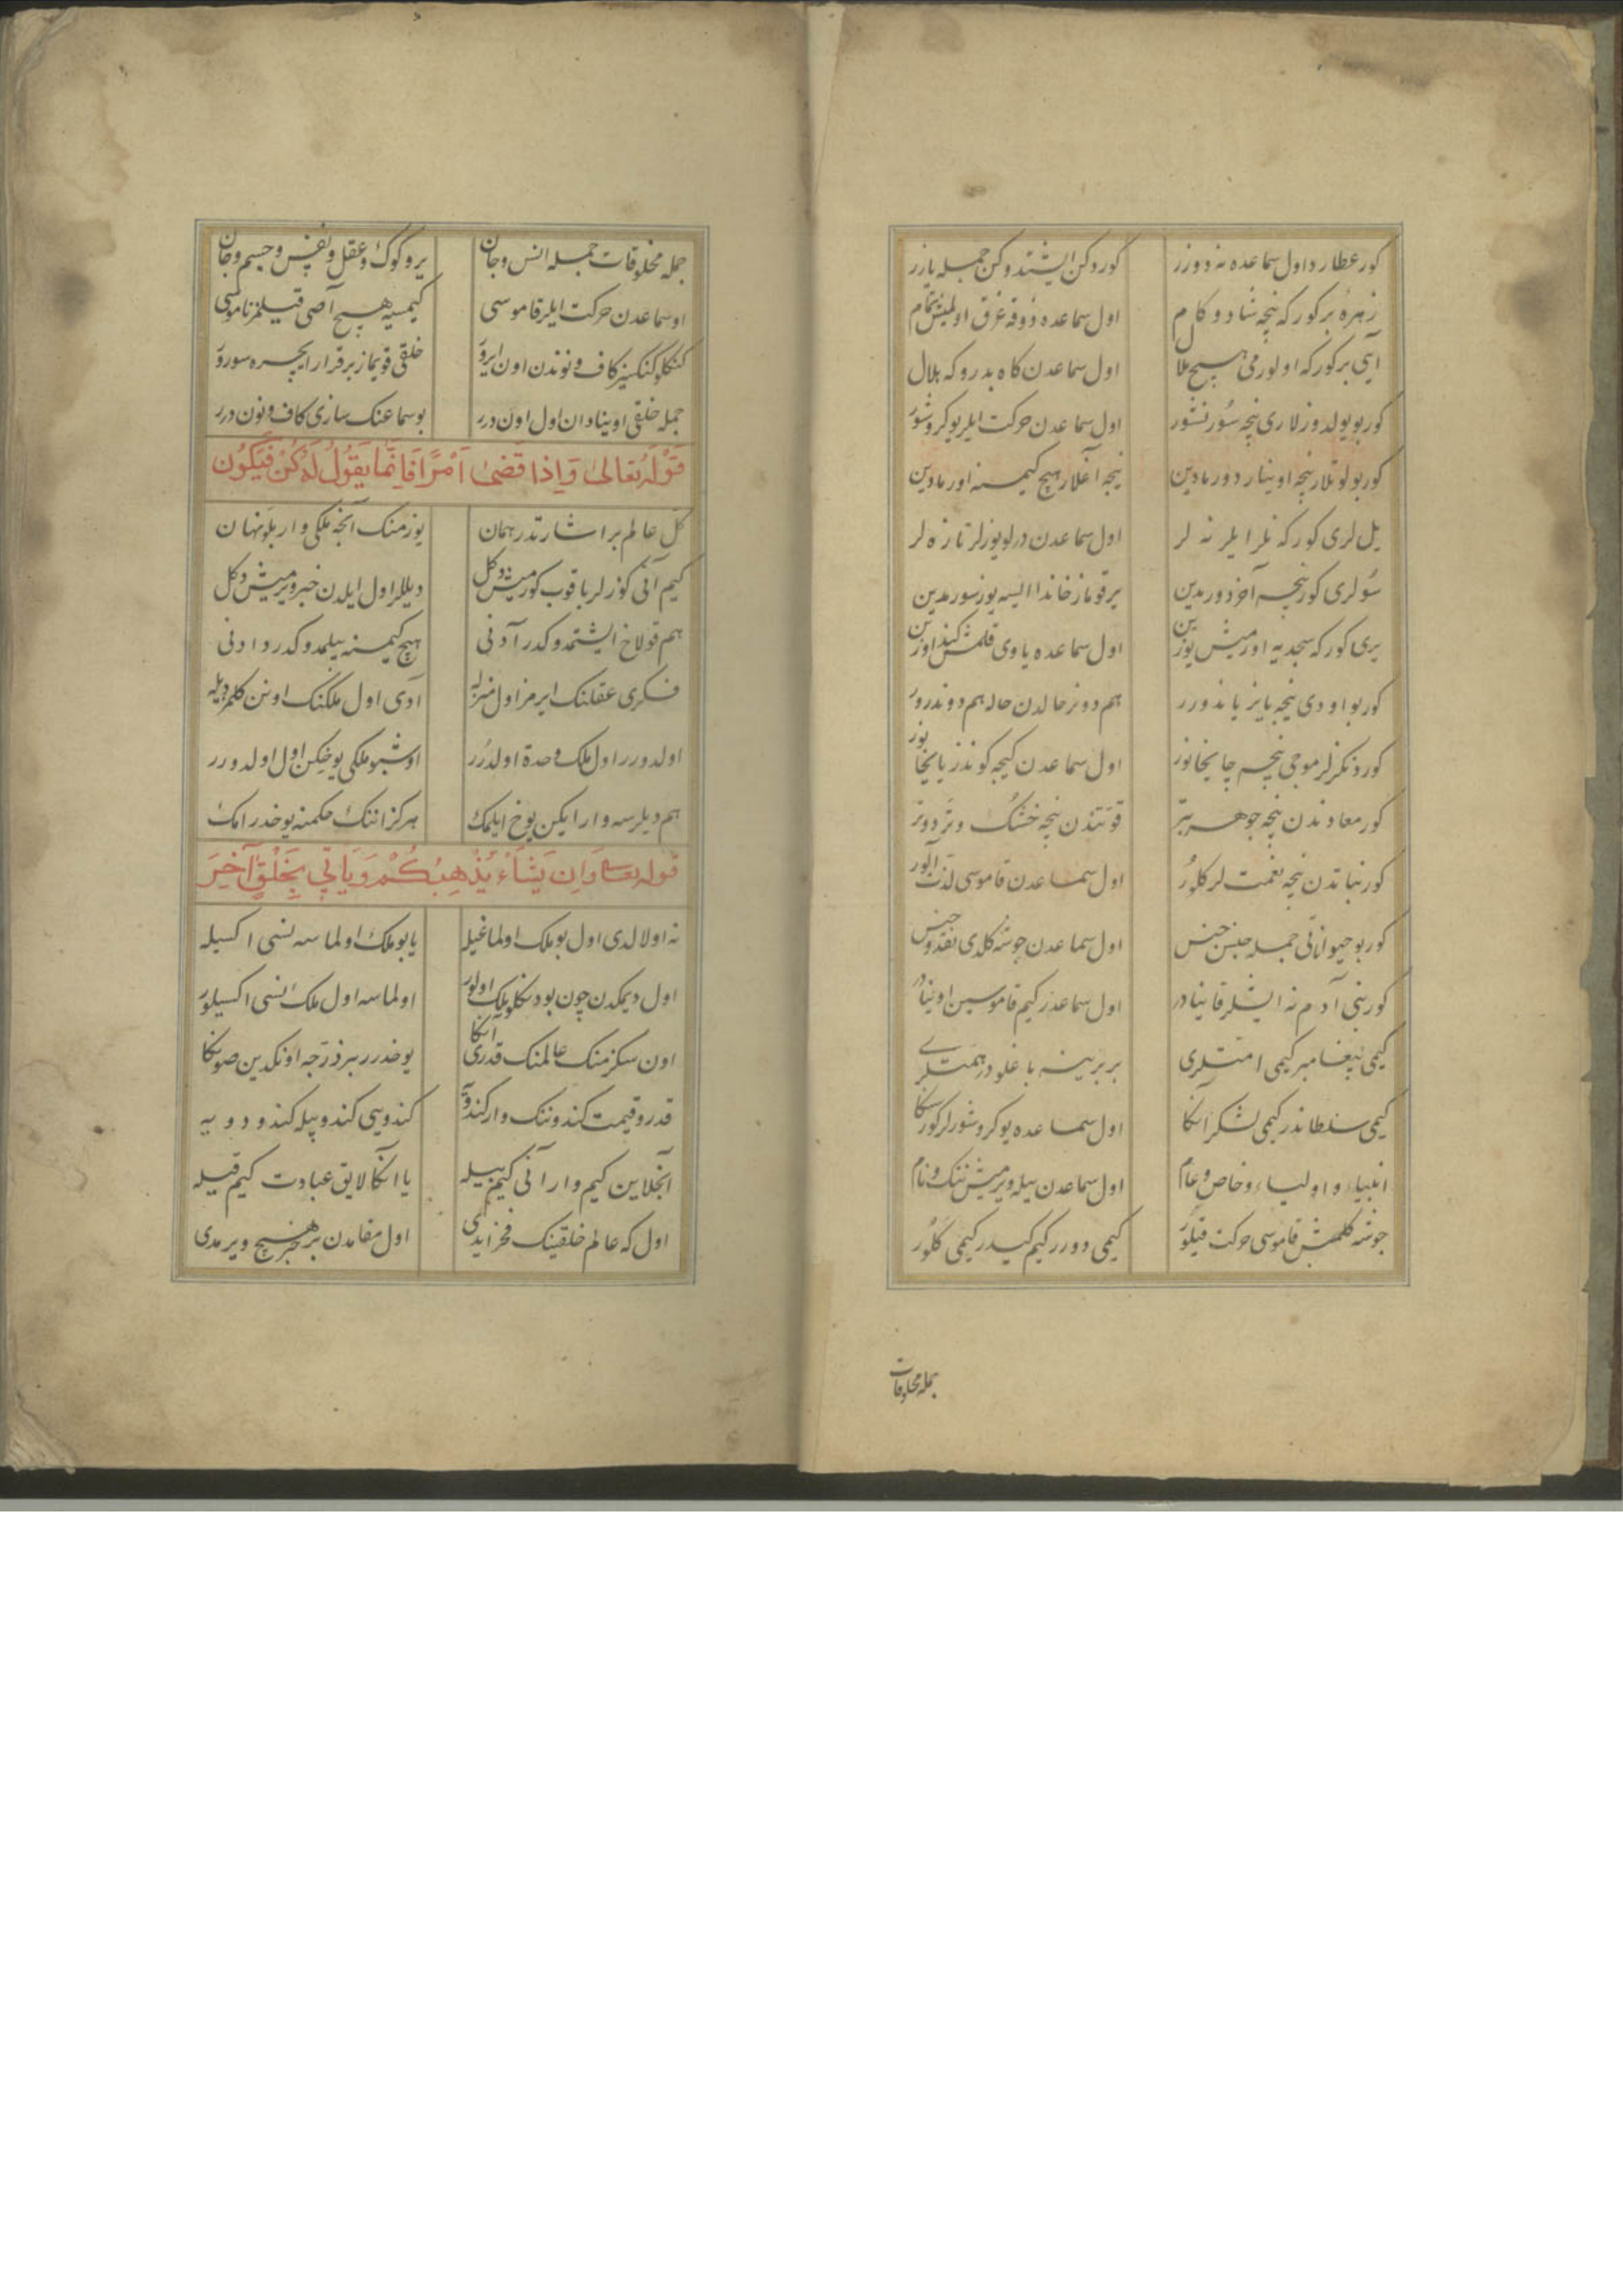 كور عطارد اول سماعده نه دوزر كوردكن ايشتدوكن جمله يازر
زهره بر كور كه نيجه شاد و كام اول سماعده ذوقه غرق اولمش تمام
آيى بر كور كه اولورمى هيچ ملال اول سماعدن كاه بدر و كه هلال
كور بو يولدوزلارى نيجه سور نشور اول سماعدن حركت ايلر يوكروشور
كور بولوتلار نيجه اوينار دورمادين نيجه آغلار هيچ كيمسنه اورمادين
يل لرى كور كه نلر ايلر نه لر اول سماعدن درلو يوزلر تازه لر
سولرى كور نيجه آخر دورمدين ير قوماز خاندا ايسه يوز سورمدين
يرى كور كه سجديه اورمش يوزين اول سماعده ياوى قلمش كندوزين
كور بو اودى نيجه يانر ياندورر هم دونر حالدن حاله هم دوندرور
كور دنكزلر موجى نيجه چايخانور اول سماعدن كيجه كوندز يايخانور
كور معادندن نيجه جوهر بتر قوتندن نيجه خشك و تر دوتر
كور نباتدن نيجه نعمت لر كلور اول سماعدن قاموسى لذت آلور
كور بو حيوانى جمله جنس جنس اول سماعدن جوشه كلدى نقد و جنس
كور بنى آدم نه ايشلر قاينادر اول سماعدر كيم قاموسين اوينادر
كيمى پيغامبر كيمى امتلرى بر برينه باغلودر همتلرى
كيمى سلطاندر كيمى لشكر انكا اول سماعده يوكروشورلر كور سكا
انبياء و اولياء و خاص و عام اول سماعدن بيله ويرمش ننك و نام
جوشه كلمش قاموسى حركت قيلور كيمى دورر كيم كيدر كيمى كلور
جمله مخلوقات
جمله مخلوقات جمله انس و جان ير و كوك و عقل و نفس و جسم و جان
او سماعدن حركت ايلر قاموسى كيمسيه هيچ آصى قيلمز ناموسى
كنكلو كنكسيز كاف و نوندن اون ايرور خلقى قويماز برقرار ايچره سورور
جمله خلقى اوينادان اول اون درر بو سماعنك سازى كاف و نون درر
قوله تعالى وَإِذَا قَضَىٰ أَمْرًا فَإِنَّمَا يَقُولُ لَهُ كُنْ فَيَكُونُ
كل عالم بر اشارتدر همان يوز منك آنجه ملكى وار بلو نهان
كيم آنى كوزلر باقوب كورمش دوكل ديللر اول ايلدن خبر ويرمش دكل
هم قولاخ ايشتمدوكدر آدنى هيچ كيمسنه بيلمدوكدر دادنى
فكرى عقلنك ايرمز اول منزله آدى اول ملكنك اونن كلمز ديله
اولدورر اول ملك وحدة اولدرر اوشبو ملكى يوخيكن اول اولدورر
هم ديلرسه وار ايكن يوخ ايلمك هركز اننك حكمنه يوخدر امك
قوله تعالى وَإِنْ يَشَأْ يُذْهِبْكُمْ وَيَأْتِي بِخَلْقٍ آخَرَ
نه اولالدى اول بو ملك اولماغيله يا بو ملك اولماسه نسى اكسيله
اول ديمكدن چون بو دنكلو ملك اولور اولماسه اول ملك نسى اكسيلور
اون سكز منك عالمنك قدرى انكا يوخدرر بر ذرجه اوكدين صونكا
قدر و قيمت كندوننك وار كندويه كندويى كندو بيله كندو دويه
آنجلاين كيم وار آنى كيم بيله يا انكا لايق عبادت كيم قيله
اول كه عالم خلقينك فخرايدى اول مقامدن بر خبر هيچ ويرمدى